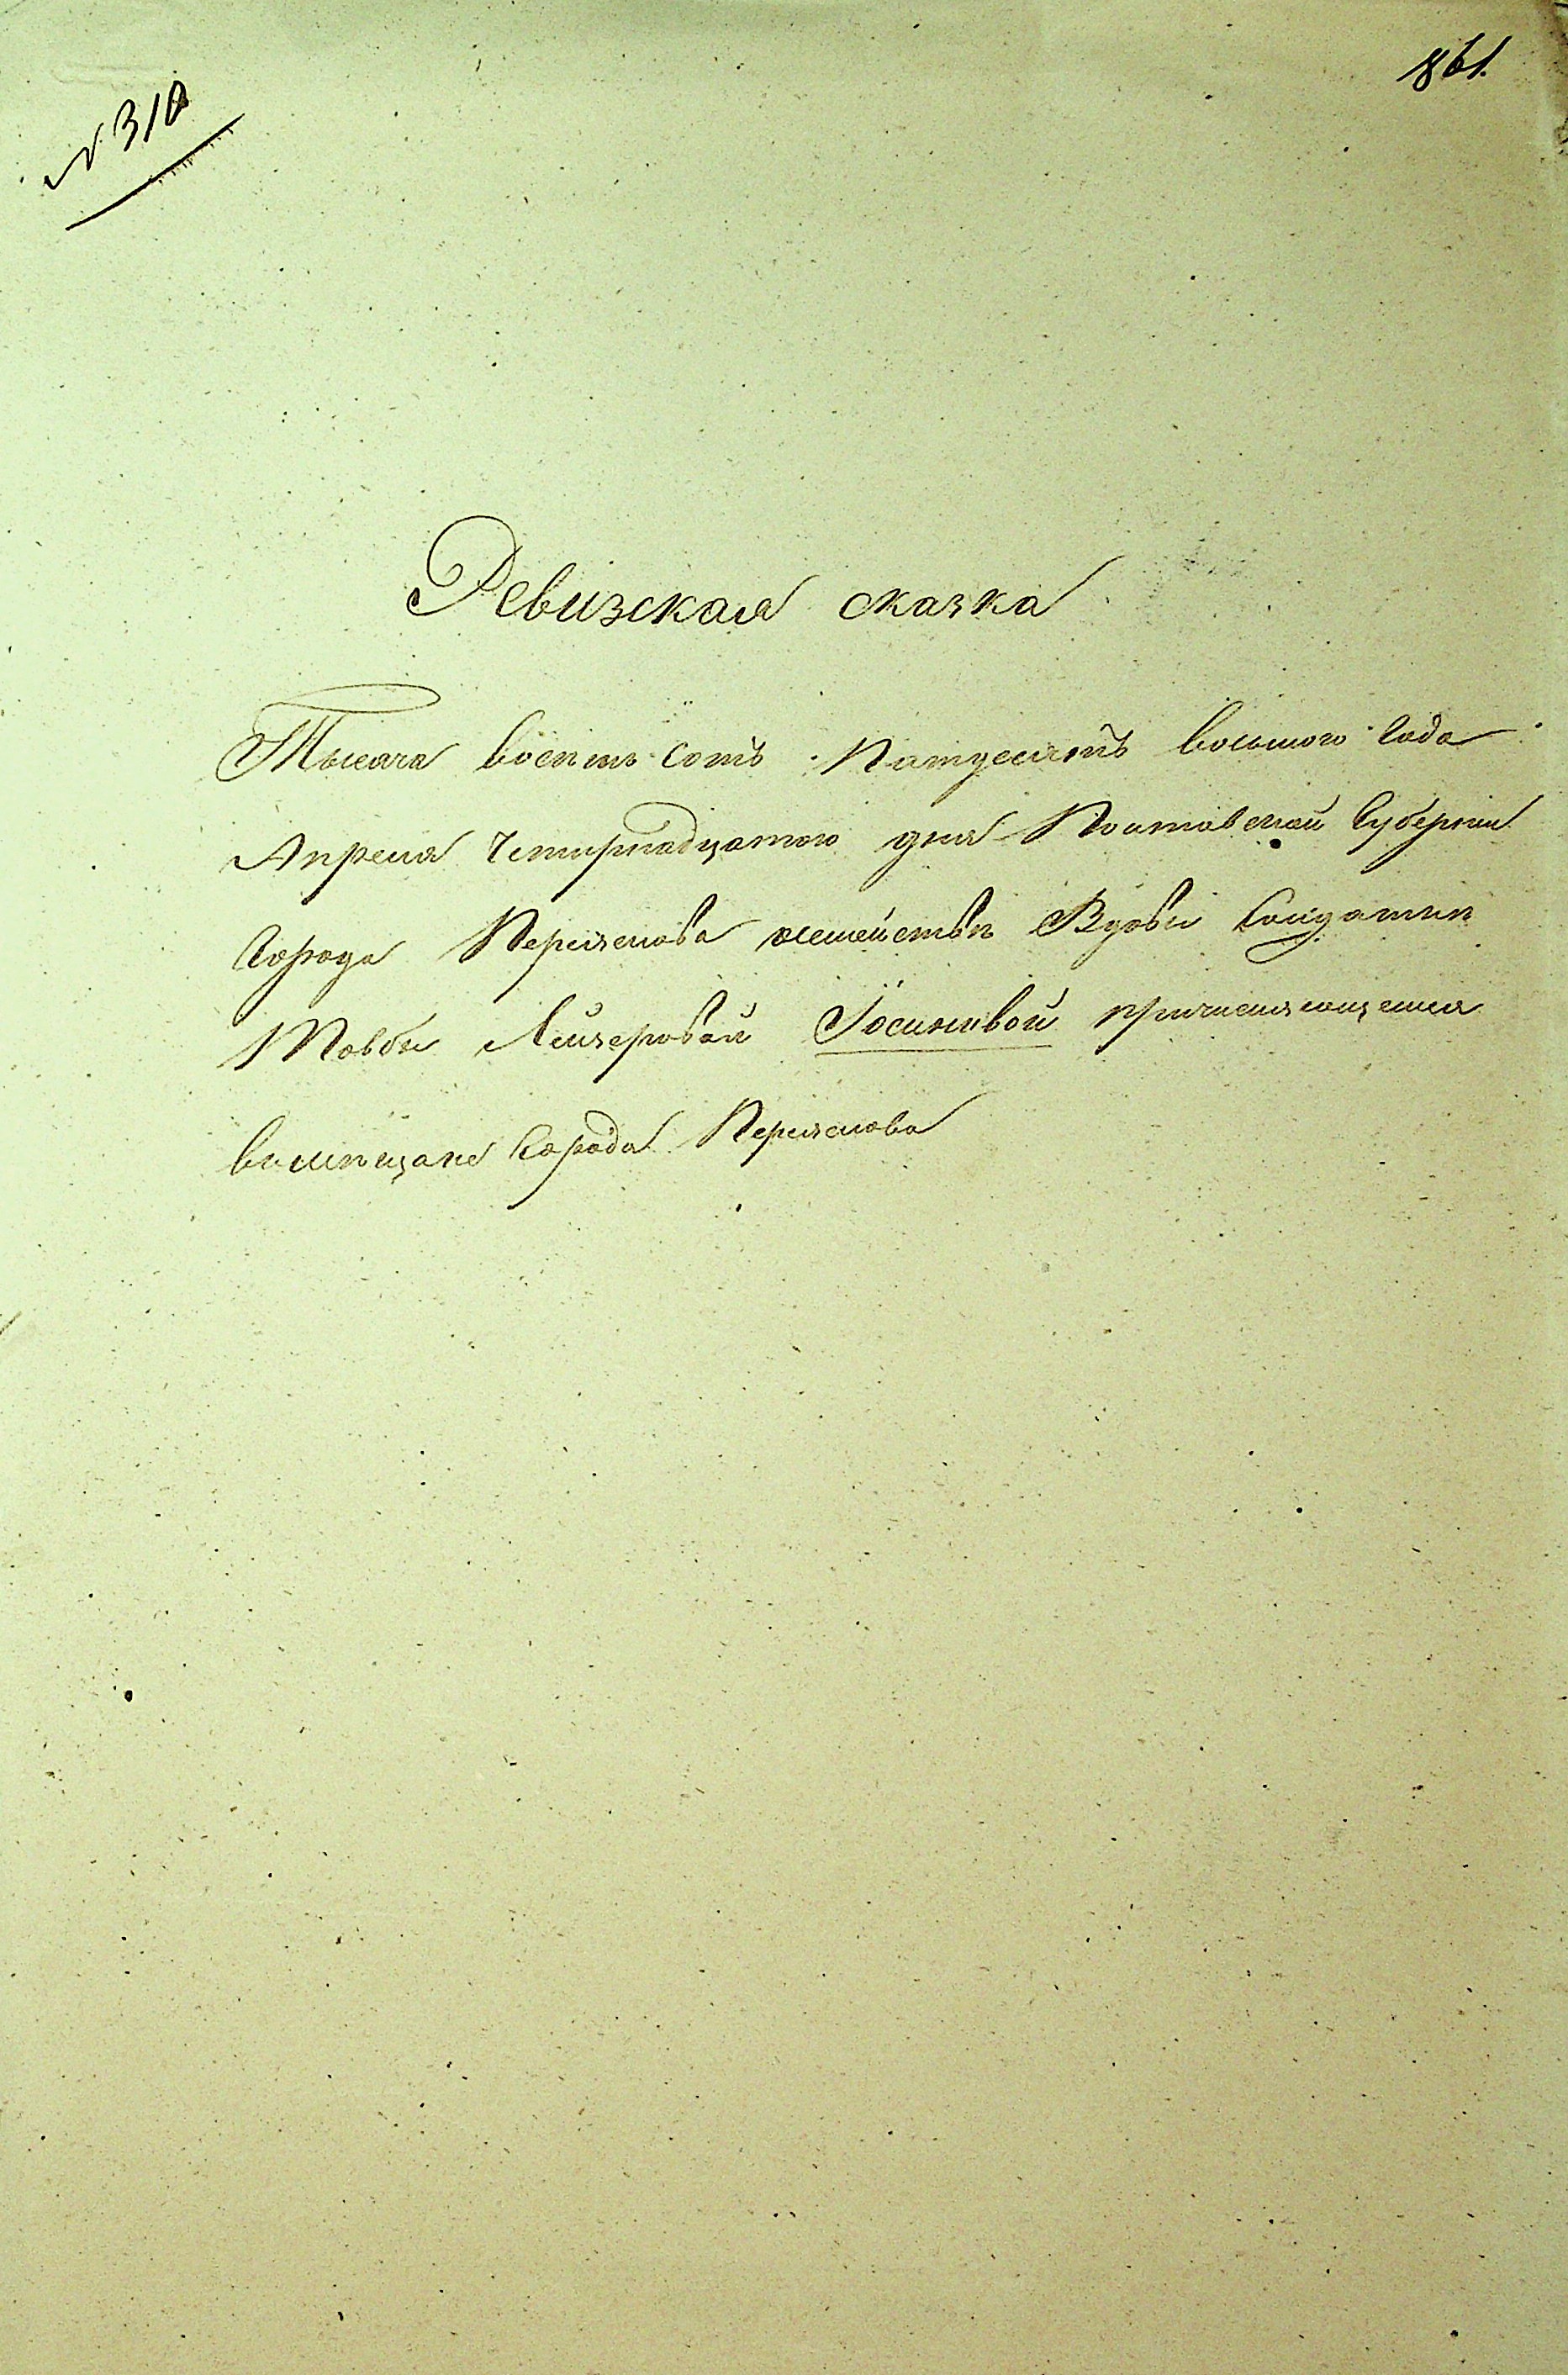 861.
№ 310
Ревизская сказка
Тысяча восемь сотъ Пятдесятъ восьмого года
Апреля Четирнадцатого дня Полтавской Губернии
Города Переяслова семействѣ Вдовы Солдатки
Товбы Лейзеровой Іосиловой причисляющемся
вмѣщане Города Переяслова